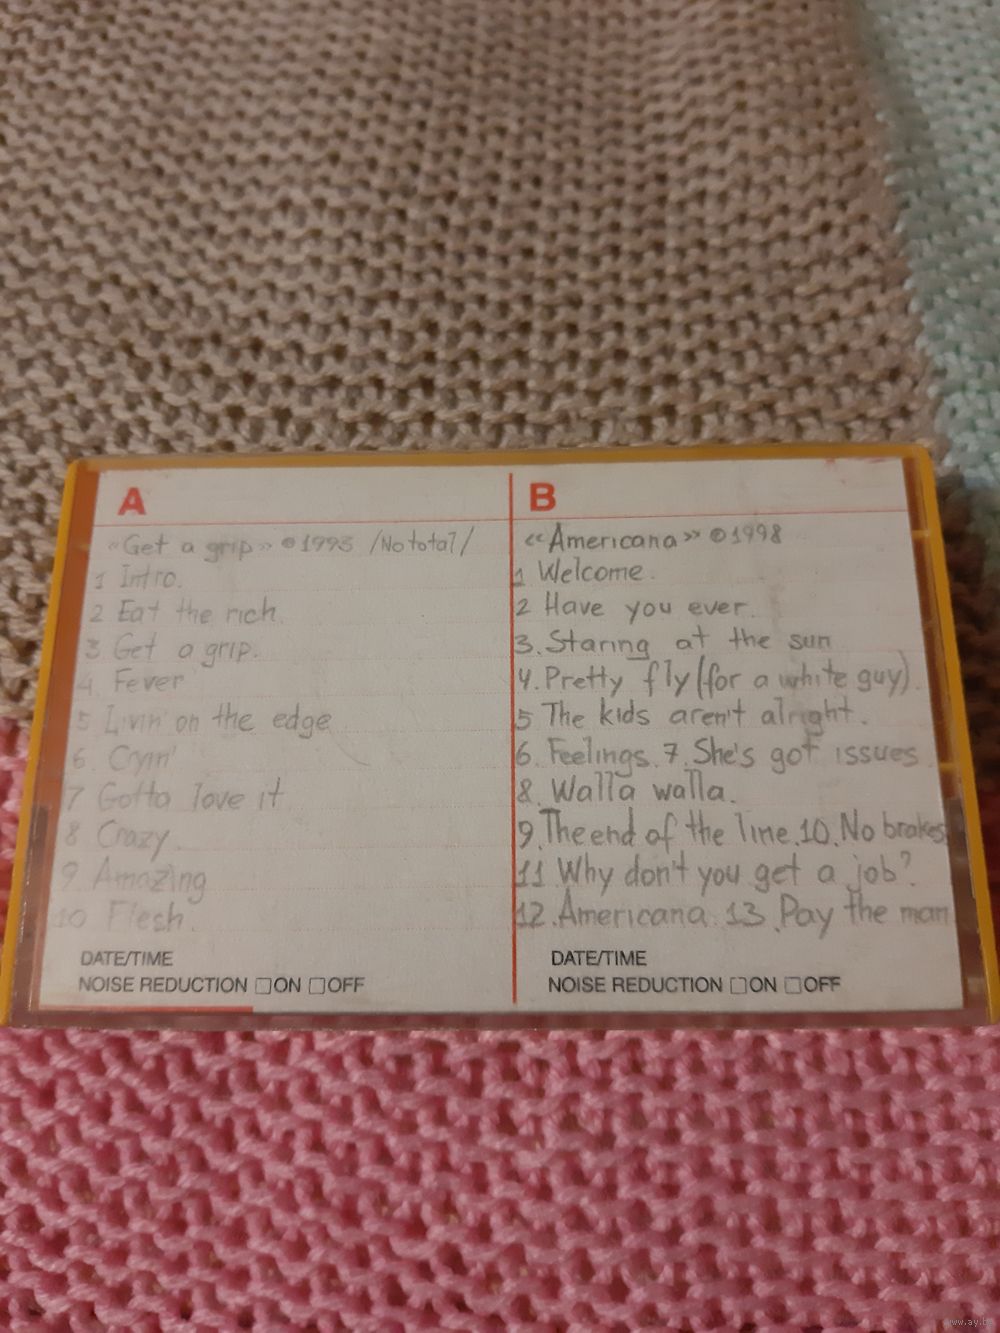 A
«Get a grip» © 1993 /No total/
1 Intro.
2 Eat the rich.
3 Get a grip.
4. Fever
5 Livin' on the edge
6 Cryin'
7 Gotta love it
8 Crazy.
9 Amazing
10 Flesh
DATE/TIME
NOISE REDUCTION □ON □OFF
B
«Americana» © 1998
1 Welcome.
2 Have you ever.
3. Staring at the sun
4. Pretty fly (for a white guy).
5 The kids aren't alright.
6. Feelings. 7. She's got issues.
8. Walla walla.
9. The end of the line. 10. No brakes
11 Why don't you get a job?
12. Americana. 13. Pay the man
DATE/TIME
NOISE REDUCTION □ON □OFF